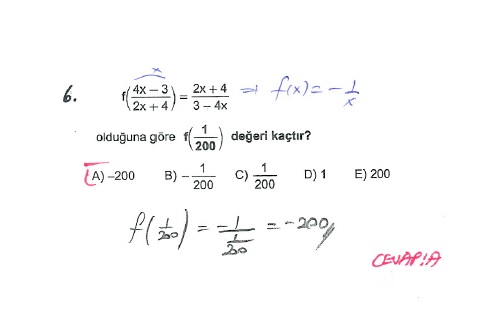 x
6. f((4x − 3)/(2x + 4)) = (2x + 4)/(3 − 4x) ⇒ f(x) = − 1/x
olduğuna göre f(1/200) değeri kaçtır?
A) –200 B) − 1/200 C) 1/200 D) 1 E) 200
f(1/200) = −1/(1/200) = −200//
CEVAP:A